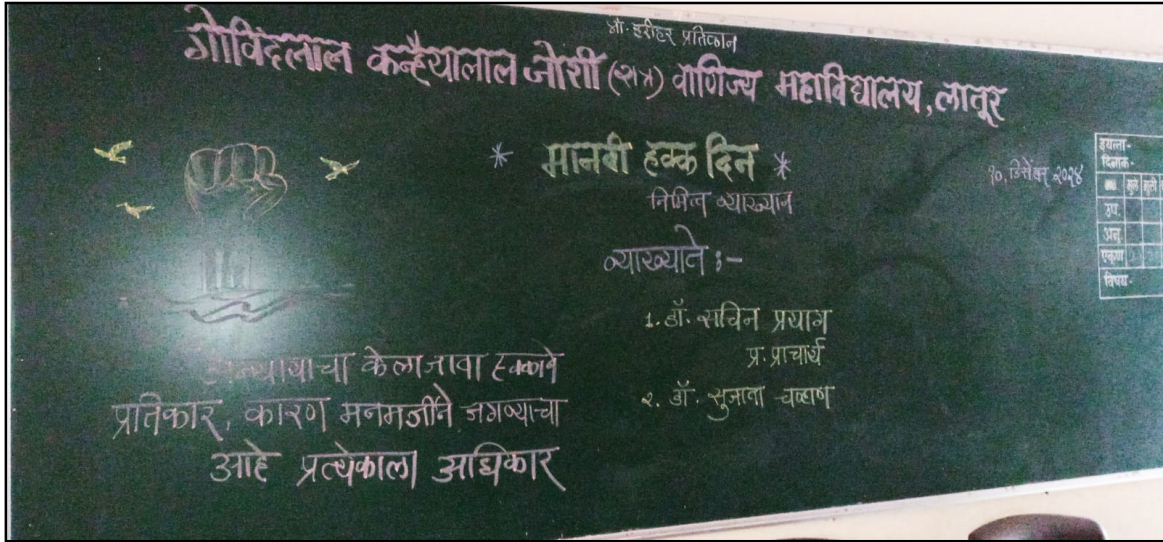 श्री. हरीहर प्रतिष्ठान
गोविंदलाल कन्हैयालाल जोशी (रात्र) वाणिज्य महाविद्यालय, लातूर
* मानवी हक्क दिन *
१०, डिसेंबर २०२४
निमित्त व्याख्यान
व्याख्याते :-
1. डॉ. सचिन प्रयाग
प्र. प्राचार्य
२. डॉ. सुजाता चव्हाण
अन्यायाचा केला जावा हक्काने
प्रतिकार, कारण मनमर्जीने जगण्याचा
आहे प्रत्येकाला अधिकार
इयत्ता -
दिनांक -
मुले मुली
उप.
अनु.
एकूण
विषय -